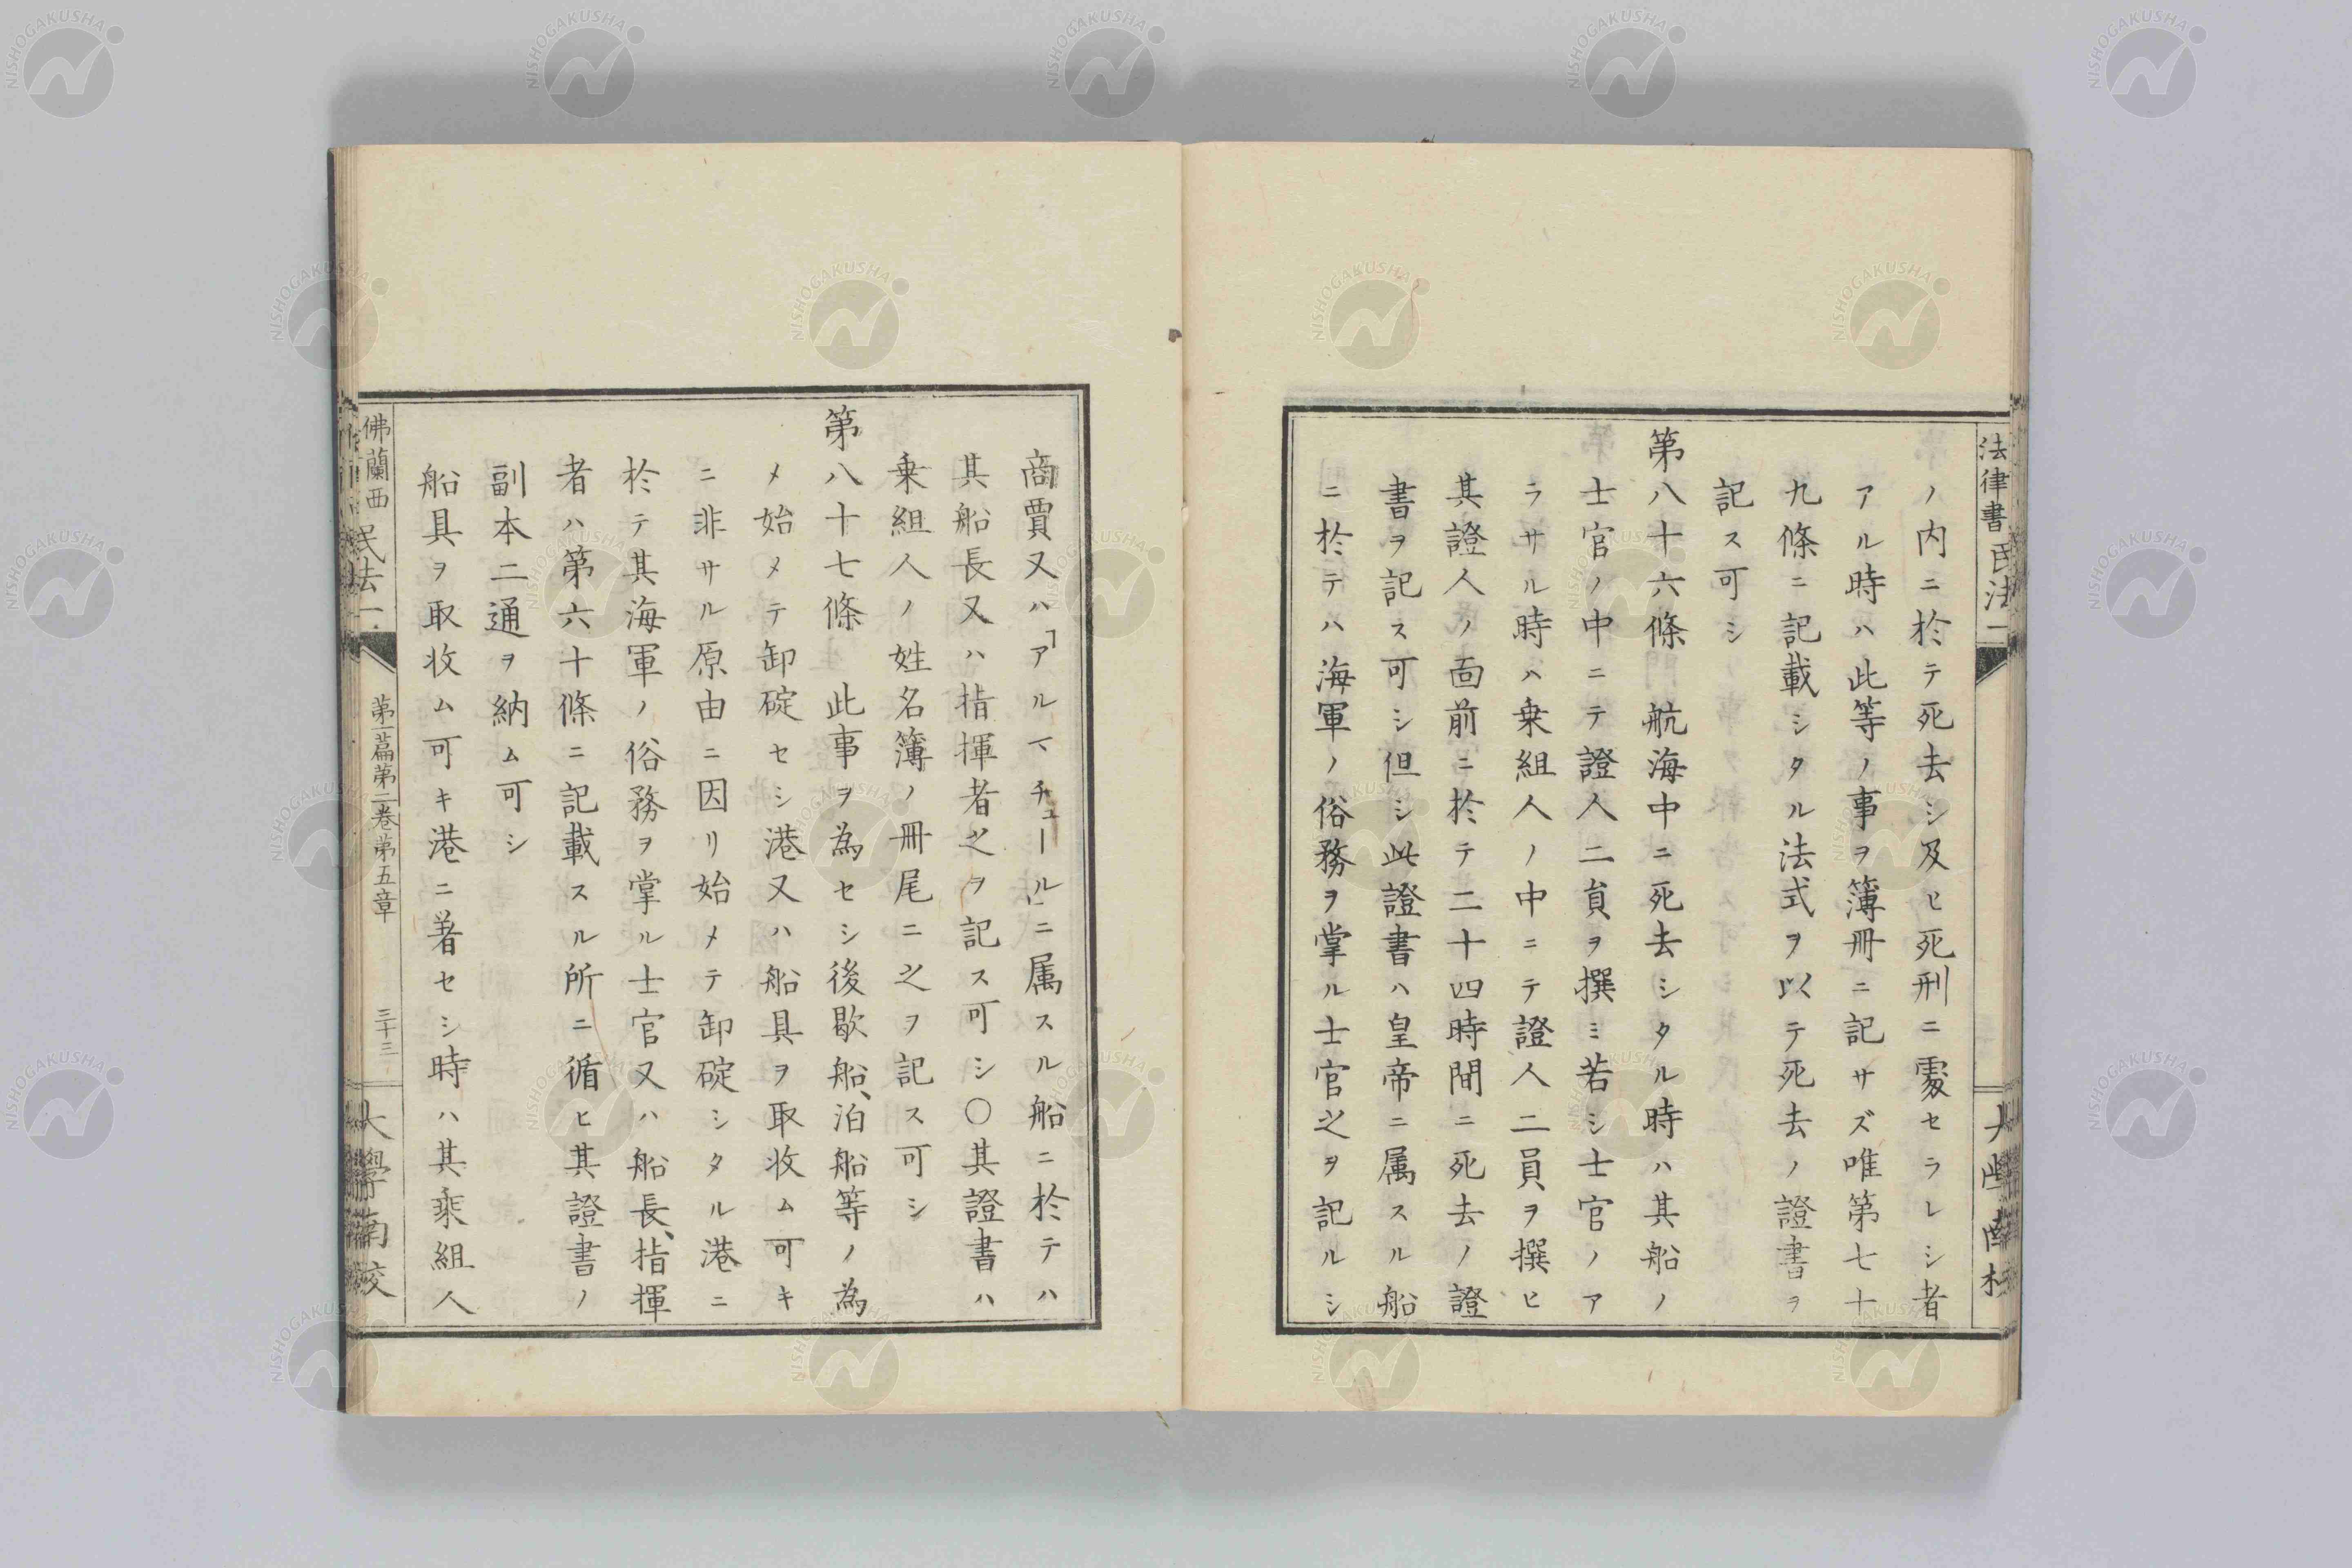 法律書民法一
大學南校
ノ内ニ於テ死去シ及ヒ死刑ニ處セラレシ者
アル時ハ此等ノ事ヲ簿冊ニ記サズ唯第七十
九條ニ記載シタル法式ヲ以テ死去ノ證書ヲ
記ス可シ
第八十六條航海中ニ死去シタル時ハ其船ノ
士官ノ中ニテ證人二員ヲ撰ミ若シ士官ノア
ラサル時ハ乗組人ノ中ニテ證人二員ヲ撰ヒ
其證人ノ面前ニ於テ二十四時間ニ死去ノ證
書ヲ記ス可シ但シ此證書ハ皇帝ニ属スル船
ニ於テハ海軍ノ俗務ヲ掌ル士官之ヲ記ルシ
商賈又ハ「アルマチュール」ニ属スル船ニ於テハ
其船長又ハ指揮者之ヲ記ス可シ〇其證書ハ
乗組人ノ姓名簿ノ冊尾ニ之ヲ記ス可シ
第八十七條 此事ヲ為セシ後歇船、泊船等ノ為
メ始メテ卸碇セシ港又ハ船具ヲ取收ム可キ
ニ非サル原由ニ因リ始メテ卸碇シタル港ニ
於テ其海軍ノ俗務ヲ掌ル士官又ハ船長、指揮
者ハ第六十條ニ記載スル所ニ循ヒ其證書ノ
副本二通ヲ納ム可シ
船具ヲ取收ム可キ港ニ著セシ時ハ其乗組人
佛蘭西民法一
第一篇第二巻第五章
三十三
大學南校
NISHOGAKUSHA